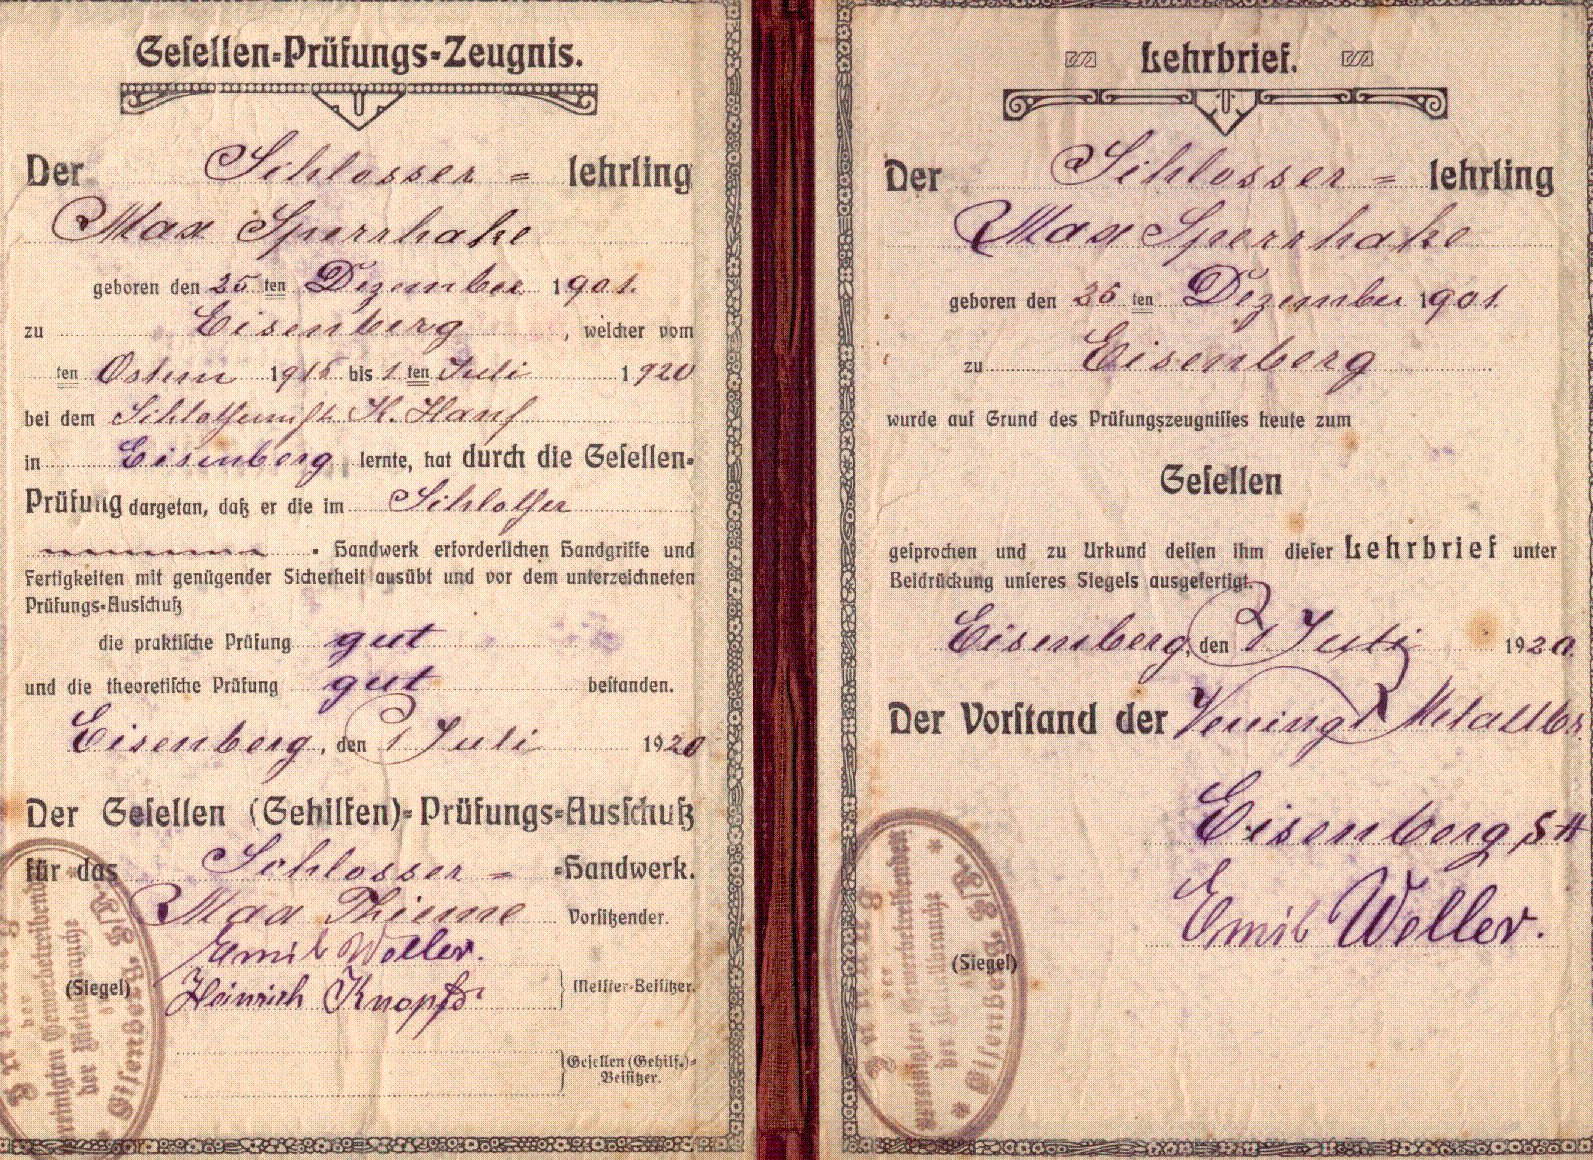 Gesellen-Prüfungs-Zeugnis.
Der Schlosser = lehrling
Max Sperrhake
geboren den 25 ten Dezember 1901.
zu Eisenberg, welcher vom
ten Ostern 1916 bis 1 ten Juli 1920
bei dem Schlossermstr. K. Hanf
in Eisenberg lernte, hat durch die Gesellen-
Prüfung dargetan, daß er die im Schlosser
Handwerk erforderlichen Handgriffe und
Fertigkeiten mit genügender Sicherheit ausübt und vor dem unterzeichneten
Prüfungs-Ausschuß
die praktische Prüfung gut
und die theoretische Prüfung gut bestanden.
Eisenberg, den 1 Juli 1920
Der Gesellen (Gehilfen)-Prüfungs-Ausschuß
für das Schlosser = -Handwerk.
Max Thieme Vorsitzender.
Emil Weller.
Heinrich Knopfs Meister-Beisitzer.
(Siegel)
Gesellen (Gehilf.)-
Beisitzer.
Innung
der
vereinigten Gewerbetreibenden
der Metallbranche
* Eisenberg, S/A. *
Lehrbrief.
Der Schlosser = lehrling
Max Sperrhake
geboren den 25 ten Dezember 1901
zu Eisenberg
wurde auf Grund des Prüfungszeugnisses heute zum
Gesellen
gesprochen und zu Urkund dessen ihm dieser Lehrbrief unter
Beidrückung unseres Siegels ausgefertigt.
Eisenberg, den 1 Juli 1920.
Der Vorstand der Vereinigt Metallbr.
Eisenberg SA
Emil Weller.
(Siegel)
Innung
der
vereinigten Gewerbetreibenden
der Metallbranche
* Eisenberg, S/A. *